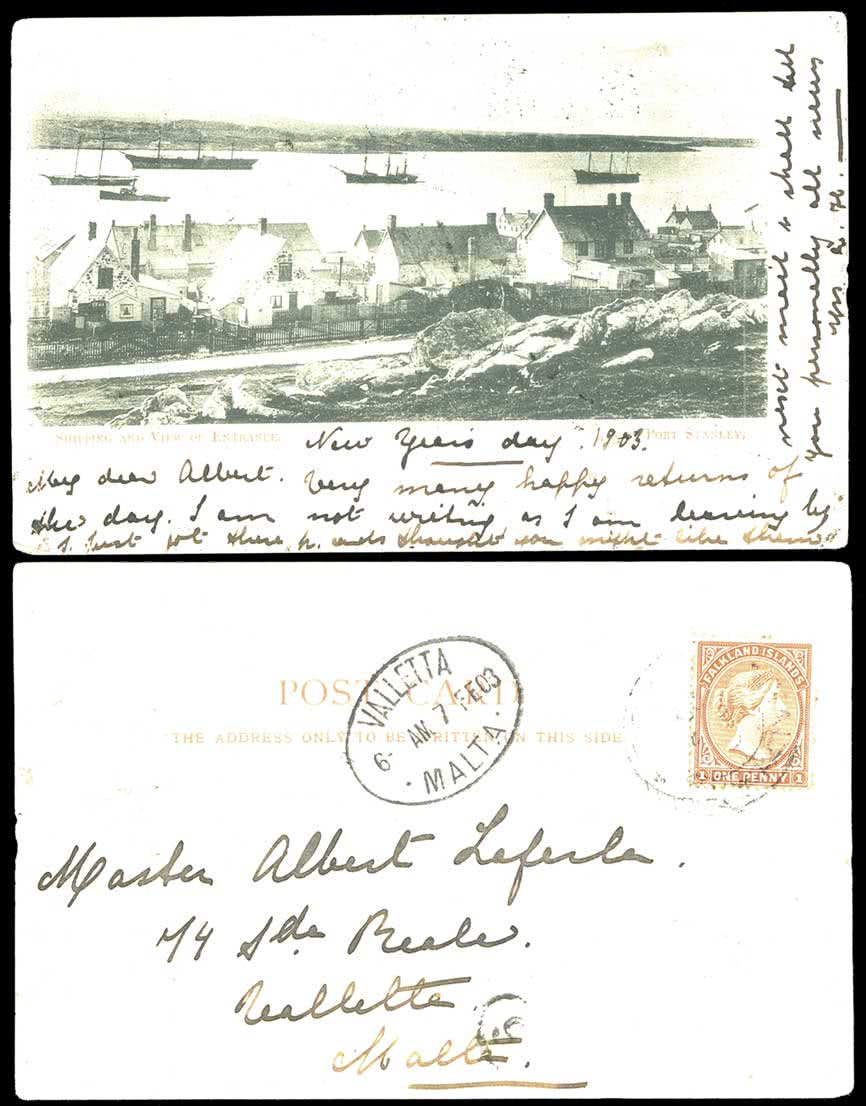 SHIPPING AND VIEW OF ENTRANCE. PORT STANLEY.
New Years day. 1903.
My dear Albert. Very many happy returns of
the day. I am not writing as I am leaving by
next mail & shall tell
you personally all news
I just got these p. cards thought you might like them
POST CARD
THE ADDRESS ONLY TO BE WRITTEN ON THIS SIDE
VALLETTA
6- AM. 7 FE 03
· MALTA ·
FALKLAND ISLANDS
1 ONE PENNY 1
Master Albert Laferla.
74 Sda Reale.
Vallette
Malta.